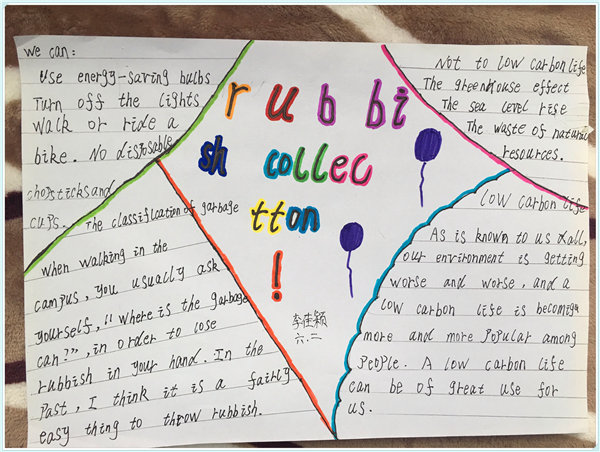 we can:
Use energy-saving bulbs
Turn off the lights
walk or ride a
bike. No disposable
chopsticks and
cups.
rubbi
sh collec
tton
!
李佳颖
六.二
Not to low carbon life
The greenhouse effect
The sea level rise
The waste of natural
resources.
The classification of garbage
when walking in the
campus, you usually ask
yourself, "where is the garbage
can?", in order to lose
rubbish in your hand. In the
Past, I think it is a fairly
easy thing to throw rubbish.
low carbon life
As is known to us all,
our environment is getting
worse and worse, and a
low carbon life is becoming
more and more popular among
People. A low carbon life
can be of great use for
us.